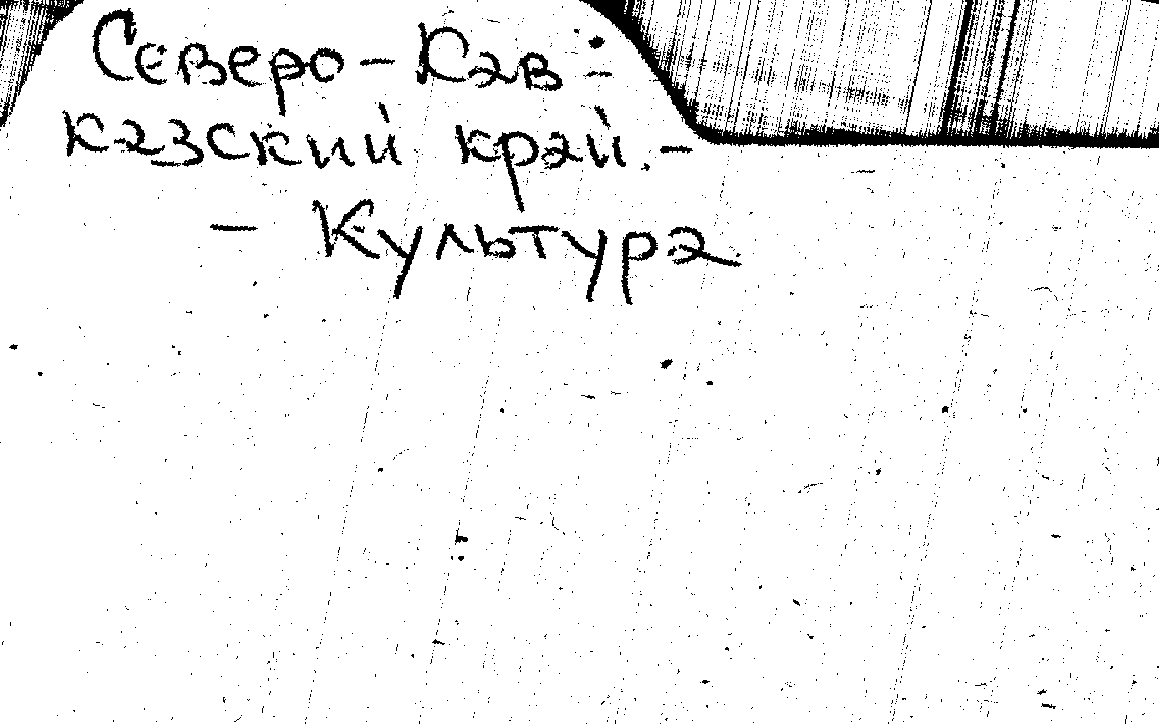 Северо-Кав-
казский край.-
- Культура